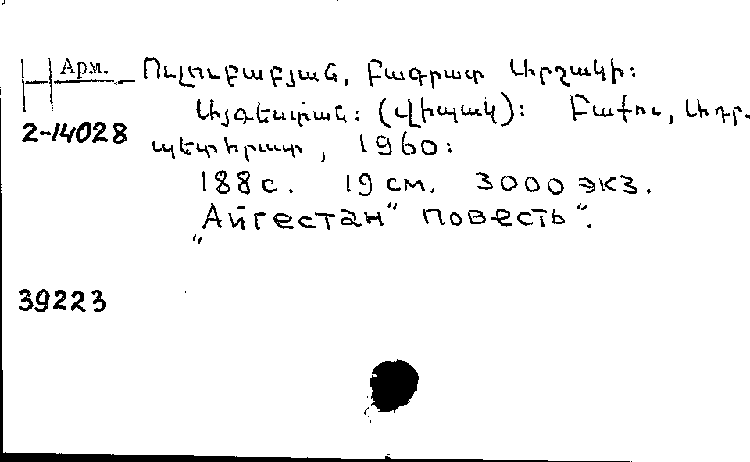 Арм. Ուլուբաբյան, Բագրատ Արշակի:
Այգեստան: (Վիպակ): Բաքու, Ադր.
2-14028 պետհրատ, 1960:
188 с. 19 см. 3000 экз.
„Айгестан“ повесть“.
39223